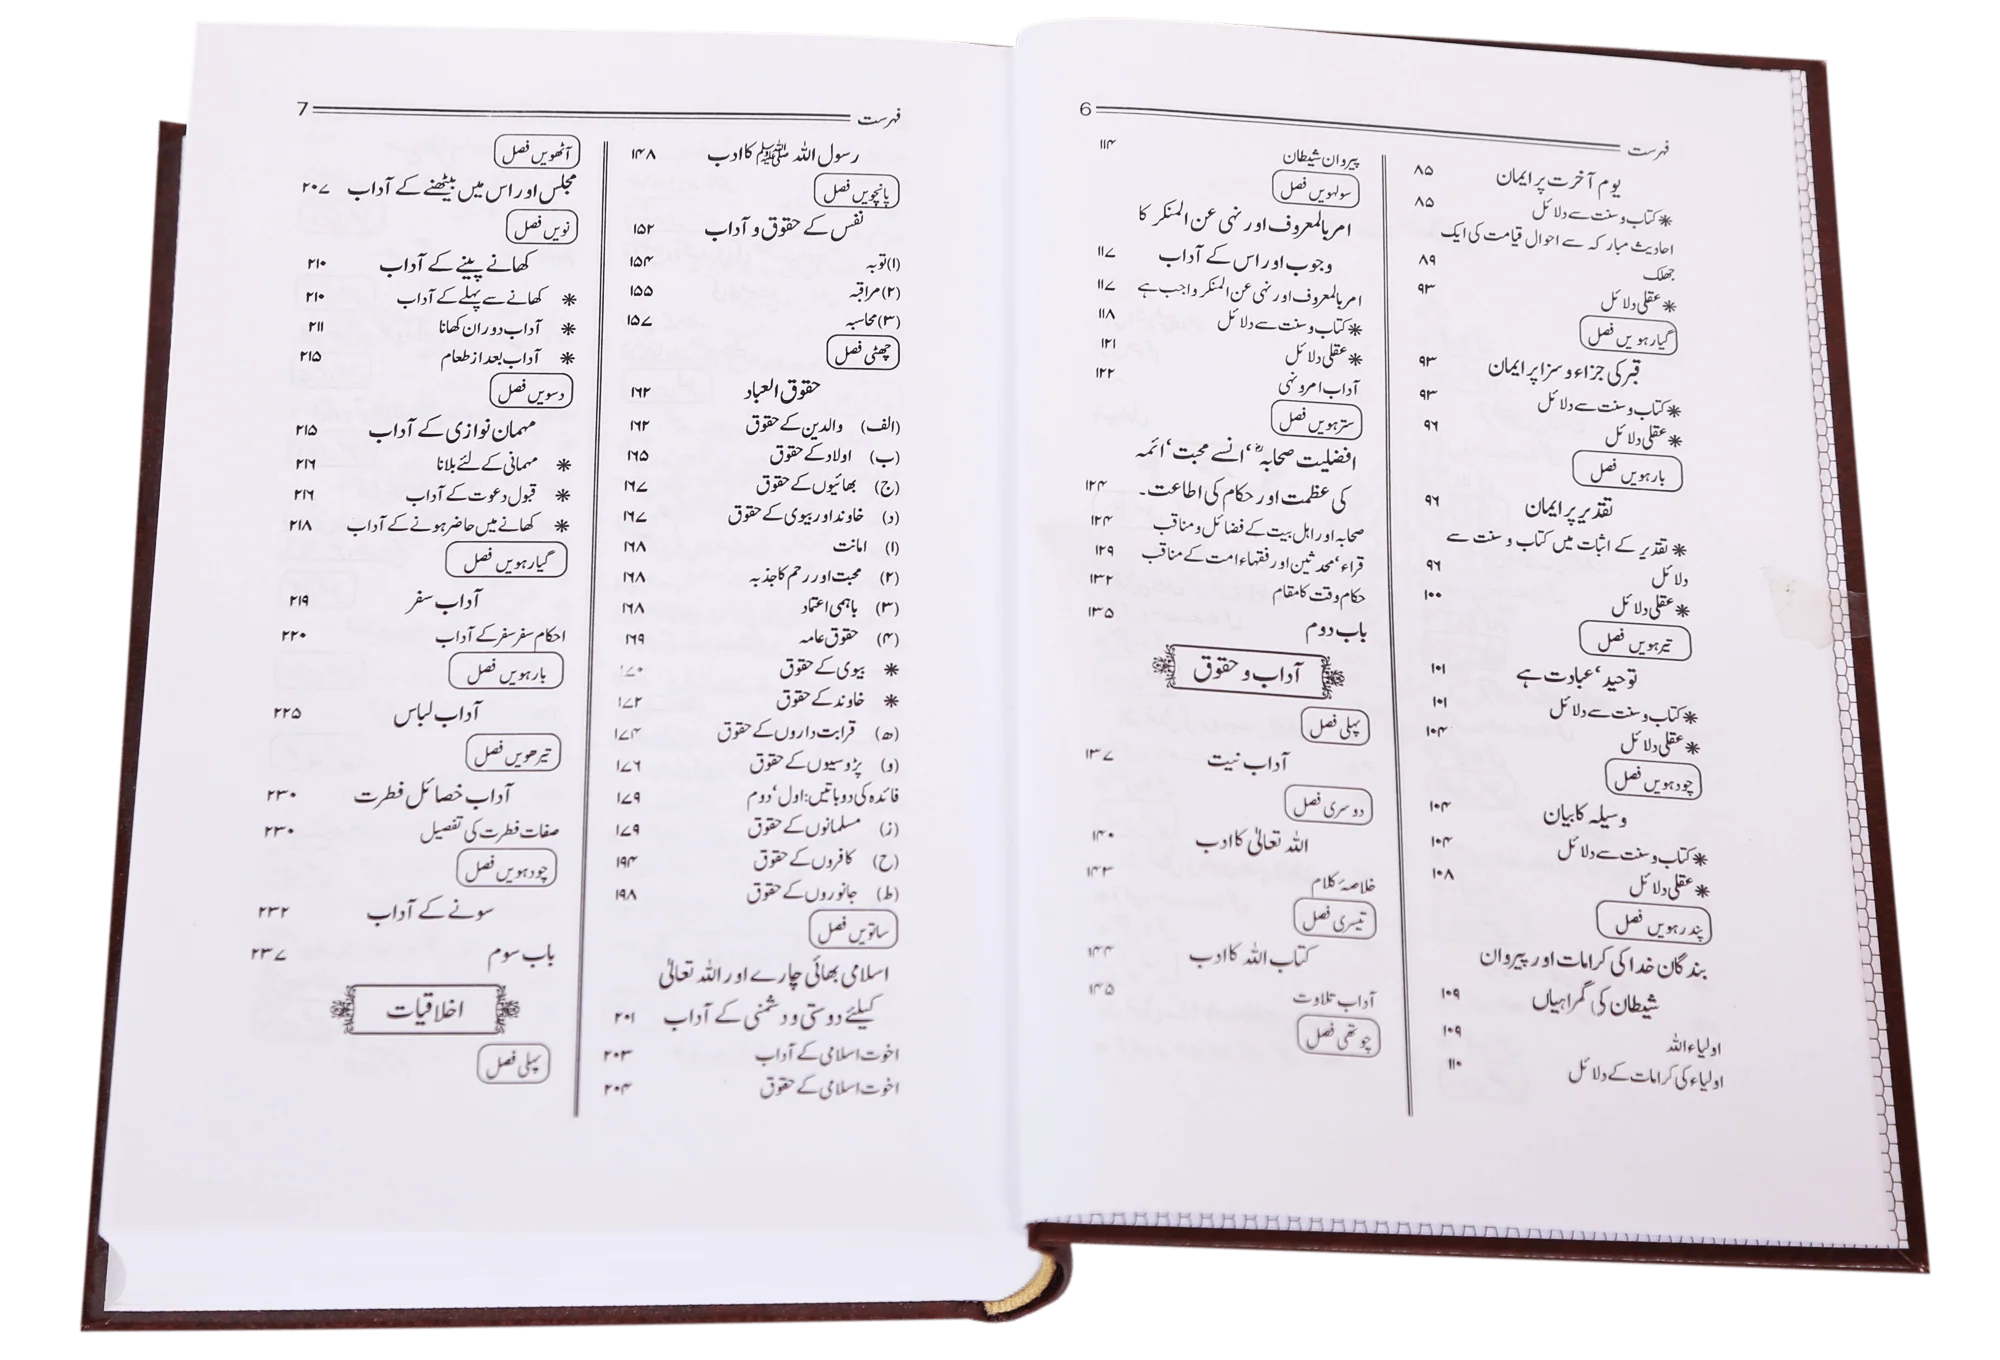 6
فہرست
یوم آخرت پر ایمان ۸۵
* کتاب و سنت سے دلائل ۸۵
احادیث مبارکہ سے احوال قیامت کی ایک
جھلک ۸۹
* عقلی دلائل ۹۳
گیارہویں فصل
قبر کی جزاء و سزا پر ایمان ۹۳
* کتاب و سنت سے دلائل ۹۳
* عقلی دلائل ۹۶
بارہویں فصل
تقدیر پر ایمان ۹۶
* تقدیر کے اثبات میں کتاب و سنت سے
دلائل ۹۶
* عقلی دلائل ۱۰۰
تیرہویں فصل
توحید ‘ عبادت ہے ۱۰۱
* کتاب و سنت سے دلائل ۱۰۱
* عقلی دلائل ۱۰۴
چودہویں فصل
وسیلہ کا بیان ۱۰۴
* کتاب و سنت سے دلائل ۱۰۴
* عقلی دلائل ۱۰۸
پندرہویں فصل
بندگان خدا کی کرامات اور پیروان
شیطان کی گمراہیاں ۱۰۹
اولیاء اللہ ۱۰۹
اولیاء کی کرامات کے دلائل ۱۱۰
پیروان شیطان ۱۱۴
سولہویں فصل
امر بالمعروف اور نہی عن المنکر کا
وجوب اور اس کے آداب ۱۱۷
امر بالمعروف اور نہی عن المنکر واجب ہے ۱۱۷
* کتاب و سنت سے دلائل ۱۱۸
* عقلی دلائل ۱۲۱
آداب امر و نہی ۱۲۲
سترہویں فصل
افضلیت صحابہؓ ‘ انسے محبت ‘ ائمہ
کی عظمت اور حکام کی اطاعت۔ ۱۲۴
صحابہ اور اہل بیت کے فضائل و مناقب ۱۲۴
قراء ‘ محدثین اور فقہاء امت کے مناقب ۱۲۹
حکام وقت کا مقام ۱۳۲
باب دوم ۱۳۵
آداب و حقوق
پہلی فصل
آداب نیت ۱۳۷
دوسری فصل
اللہ تعالیٰ کا ادب ۱۴۰
خلاصۂ کلام ۱۴۳
تیسری فصل
کتاب اللہ کا ادب ۱۴۴
آداب تلاوت ۱۴۵
چوتھی فصل
7
فہرست
رسول اللہ ﷺ کا ادب ۱۴۸
پانچویں فصل
نفس کے حقوق و آداب ۱۵۲
(۱) توبہ ۱۵۴
(۲) مراقبہ ۱۵۵
(۳) محاسبہ ۱۵۷
چھٹی فصل
حقوق العباد ۱۶۲
(الف) والدین کے حقوق ۱۶۲
(ب) اولاد کے حقوق ۱۶۵
(ج) بھائیوں کے حقوق ۱۶۷
(د) خاوند اور بیوی کے حقوق ۱۶۷
(۱) امانت ۱۶۸
(۲) محبت اور رحم کا جذبہ ۱۶۸
(۳) باہمی اعتماد ۱۶۸
(۴) حقوق عامہ ۱۶۹
* بیوی کے حقوق ۱۷۰
* خاوند کے حقوق ۱۷۲
(ھ) قرابت داروں کے حقوق ۱۷۴
(و) پڑوسیوں کے حقوق ۱۷۶
فائدہ کی دو باتیں: اول ‘ دوم ۱۷۹
(ز) مسلمانوں کے حقوق ۱۷۹
(ح) کافروں کے حقوق ۱۹۴
(ط) جانوروں کے حقوق ۱۹۸
ساتویں فصل
اسلامی بھائی چارے اور اللہ تعالیٰ
کیلئے دوستی و دشمنی کے آداب ۲۰۱
اخوت اسلامی کے آداب ۲۰۳
اخوت اسلامی کے حقوق ۲۰۴
آٹھویں فصل
مجلس اور اس میں بیٹھنے کے آداب ۲۰۷
نویں فصل
کھانے پینے کے آداب ۲۱۰
* کھانے سے پہلے کے آداب ۲۱۰
* آداب دوران کھانا ۲۱۱
* آداب بعد از طعام ۲۱۵
دسویں فصل
مہمان نوازی کے آداب ۲۱۵
* مہمانی کے لئے بلانا ۲۱۶
* قبول دعوت کے آداب ۲۱۶
* کھانے میں حاضر ہونے کے آداب ۲۱۸
گیارہویں فصل
آداب سفر ۲۱۹
احکام سفر سفر کے آداب ۲۲۰
بارہویں فصل
آداب لباس ۲۲۵
تیرھویں فصل
آداب خصائل فطرت ۲۳۰
صفات فطرت کی تفصیل ۲۳۰
چودہویں فصل
سونے کے آداب ۲۳۲
باب سوم ۲۳۷
اخلاقیات
پہلی فصل